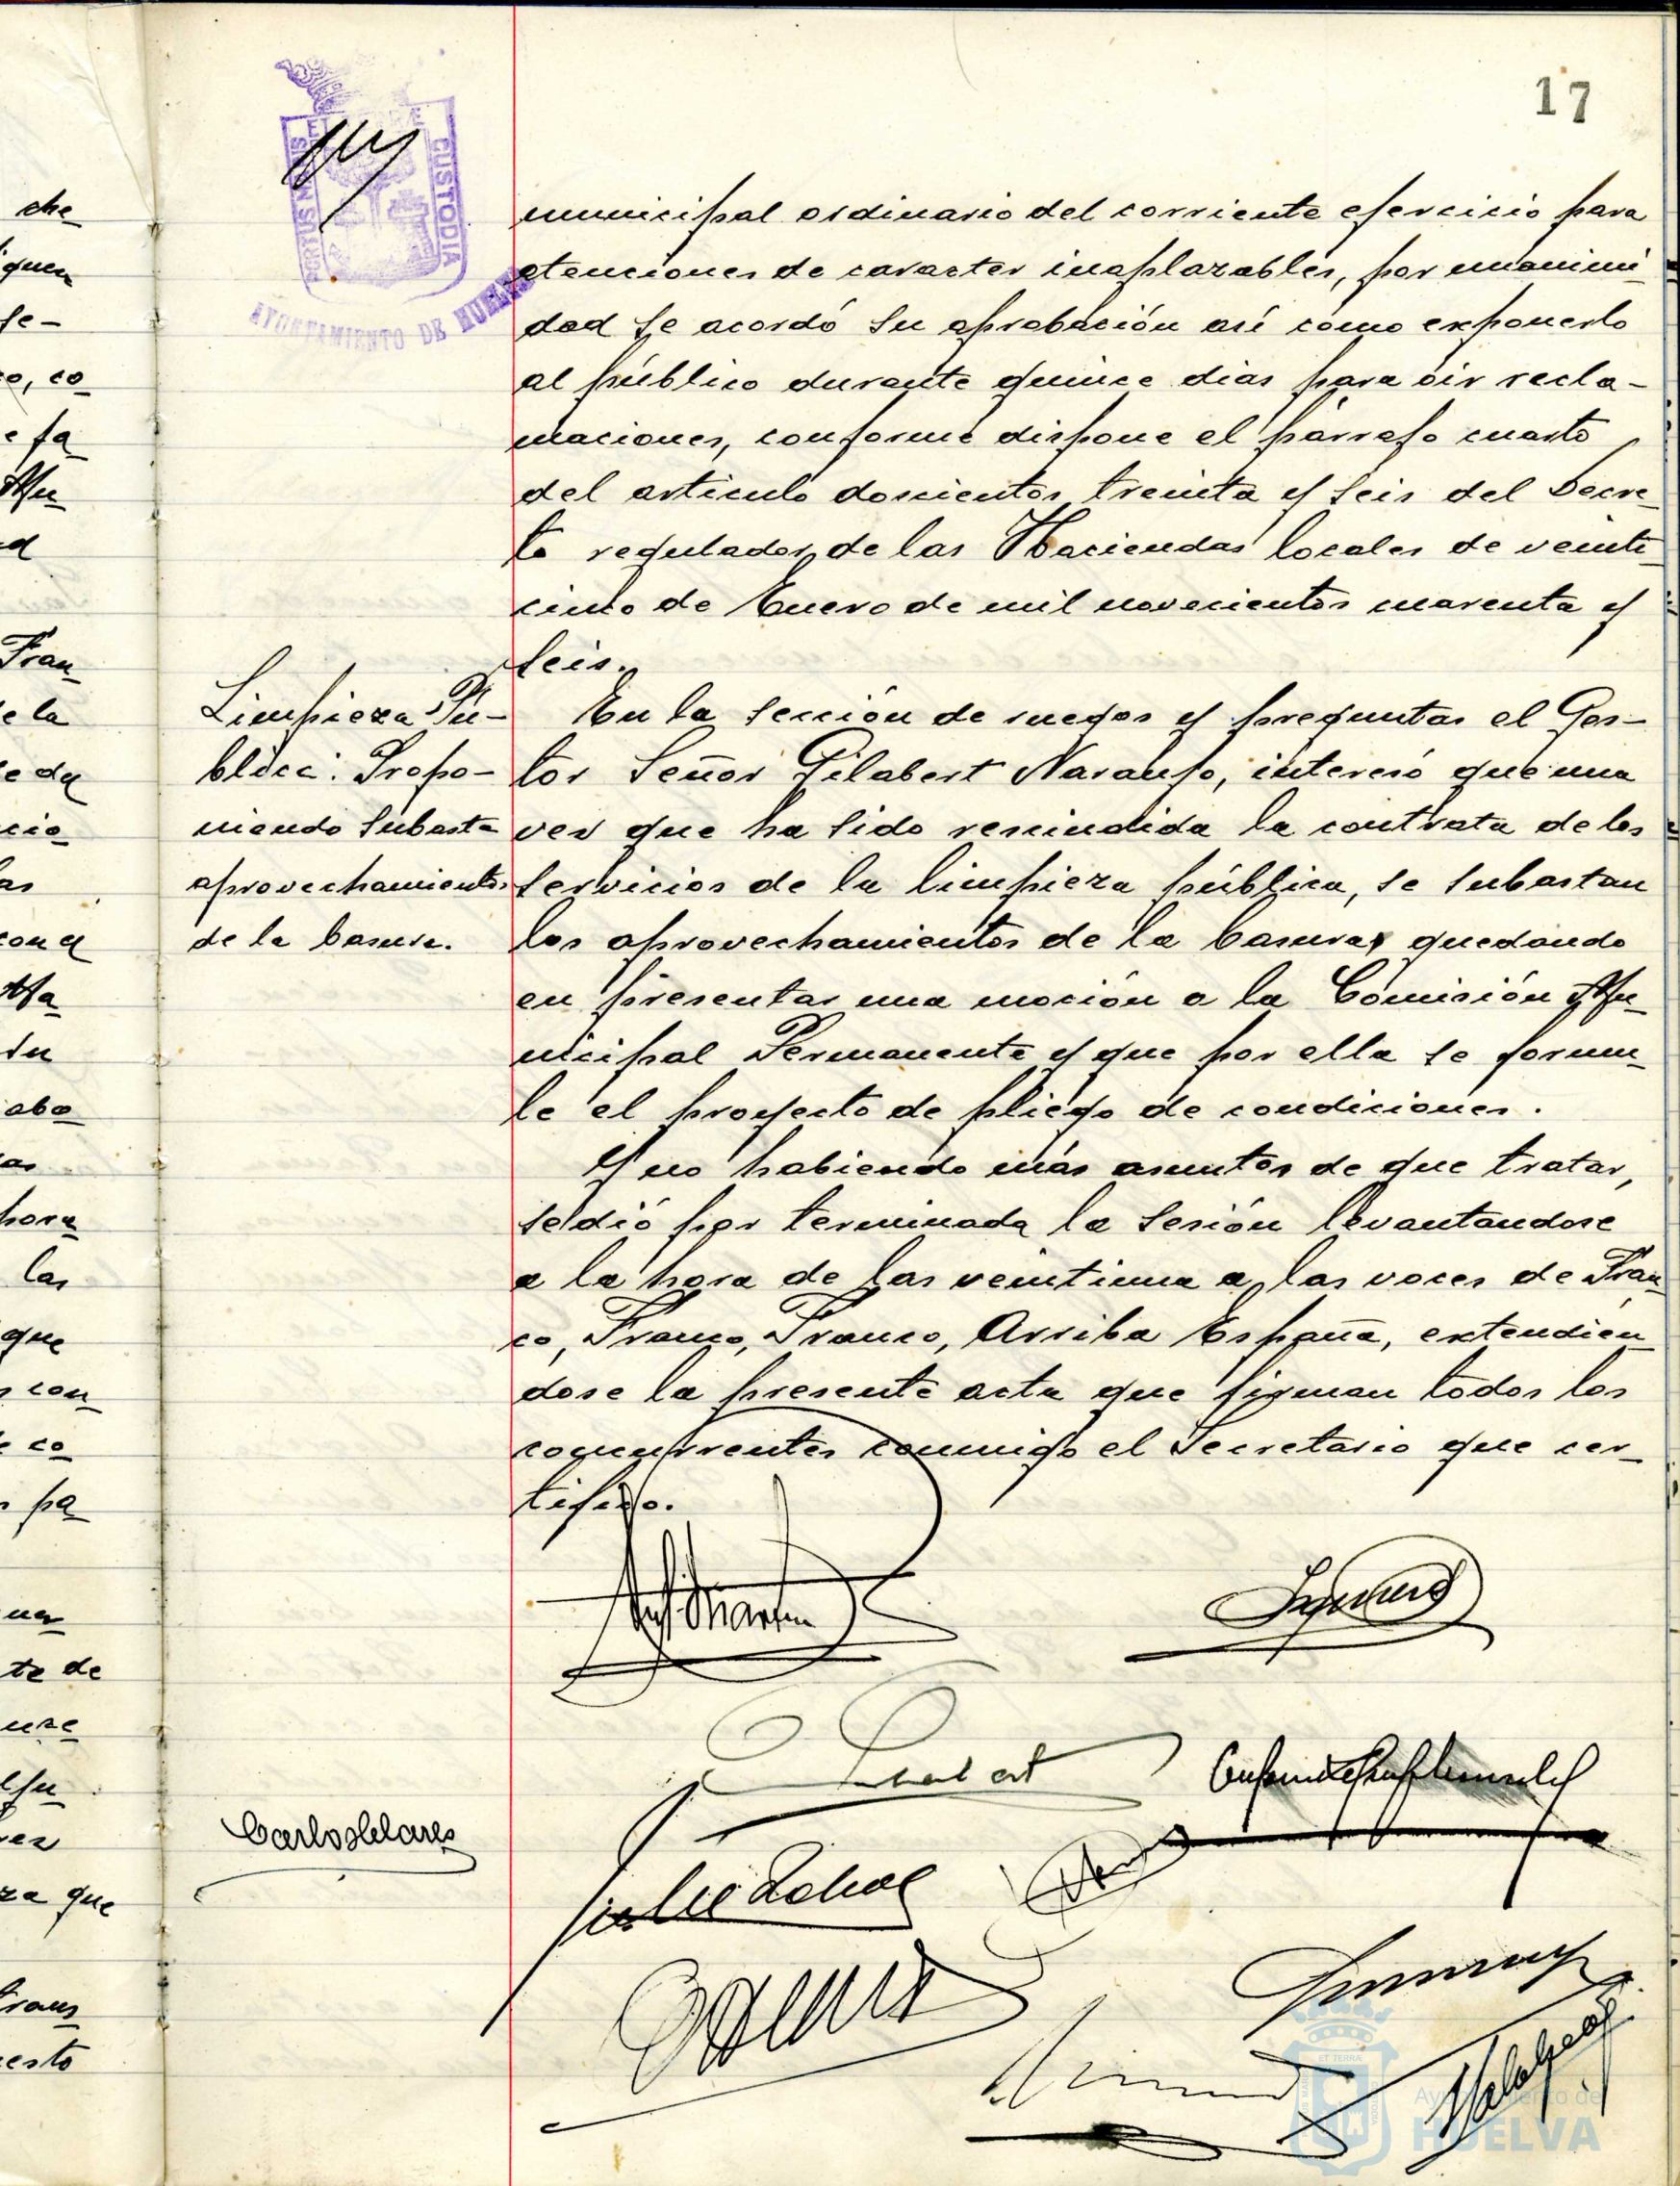 17
PORTUS MARIS ET TERRE CUSTODIA
AYUNTAMIENTO DE HUELVA
municipal ordinario del corriente ejercicio para
atenciones de caracter inaplazables, por unanimi-
dad se acordó su aprobación así como exponerlo
al público durante quince dias para oir recla-
maciones, conforme dispone el párrafo cuarto
del articulo doscientos treinta y seis del Decre_
to regulador de las Haciendas locales de veinti_
cinco de Enero de mil novecientos cuarenta y
seis.
Limpieza Pú-
blica: Propo-
niendo subasta
aprovechamientos
de la basura.
En la sección de ruegos y preguntas el Ges-
tor Señor Gilabert Naranjo, interesó que una
vez que ha sido rescindida la contrata de los
servicios de la limpieza pública, se subastan
los aprovechamientos de la basura, quedando
en presentar una moción a la Comisión Mu_
nicipal Permanente y que por ella se formu_
le el proyecto de pliego de condiciones.
Y no habiendo más asuntos de que tratar,
se dió por terminada la sesión levantandose
a la hora de las veintiuna a las voces de Fran_
co, Franco, Franco, Arriba España, extendien_
dose la presente acta que firman todos los
concurrentes conmigo el Secretario que cer_
tifico.
che
quen
se-
co, co
e fa
Mu
d
Fran
e la
cio
as
con el
Ma
su
abo
as
hora
las
que
con
e co
pa
te de
que
esto
ET TERRA
CUSTODIA
Ayuntamiento de
HUELVA